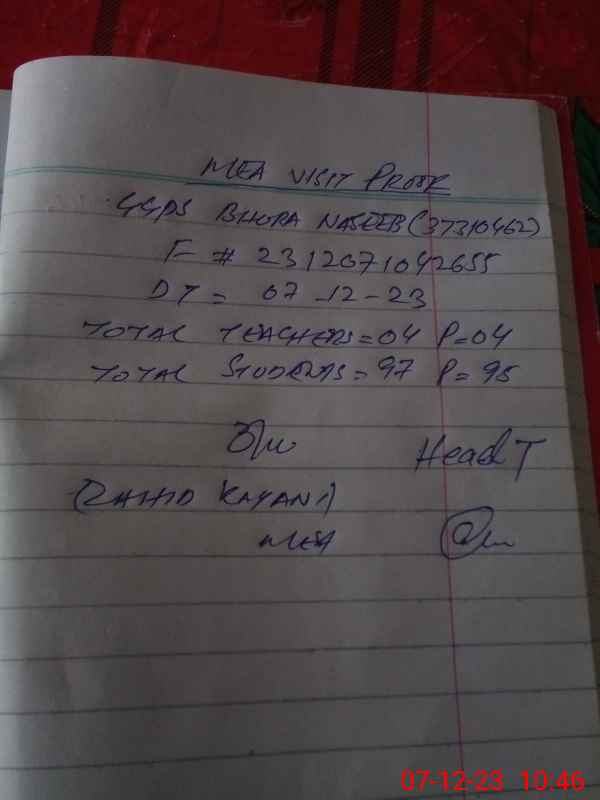 MEA VISIT PROOF
GGPS BHORA NASEEB (37310462)
F # 2312071042655
DT = 07-12-23
TOTAL TEACHERS = 04 P = 04
TOTAL STUDENTS = 97 P = 95
Head T
(ZAHID KAYANI)
MEA
07-12-23 10:46